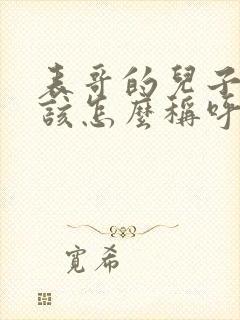 表哥的兒子
該怎麼稱呼
寬希